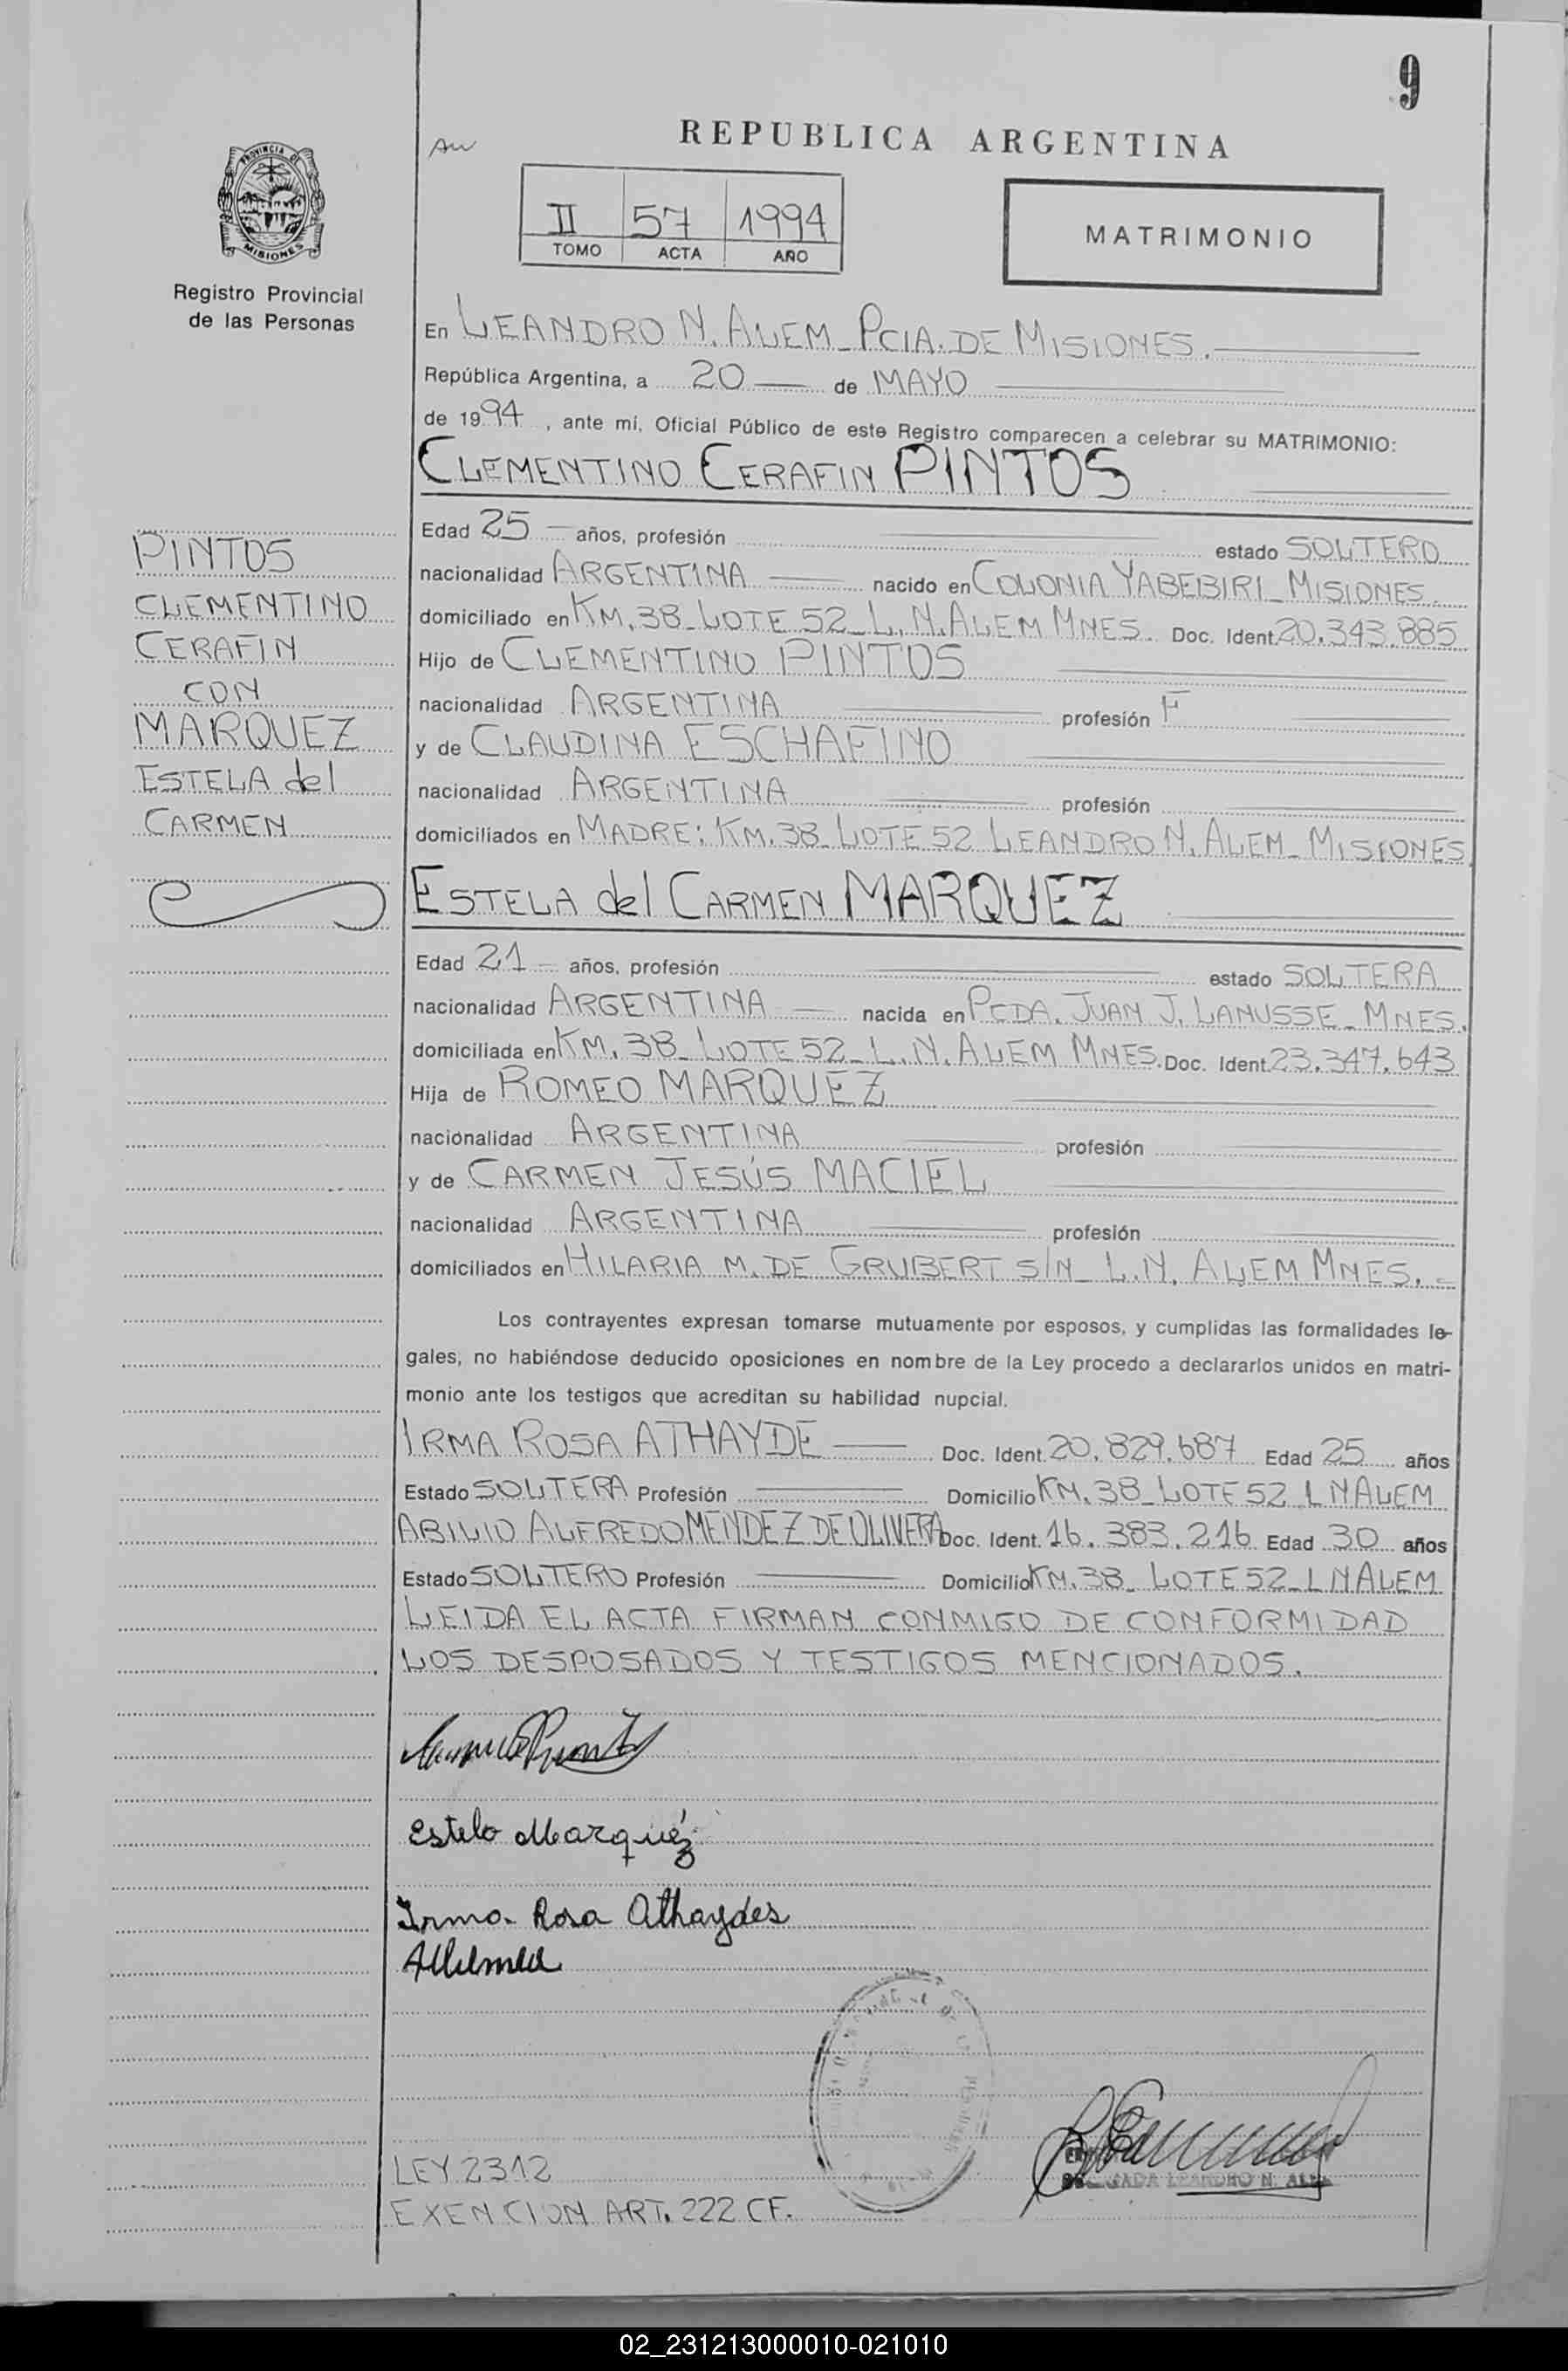 9
REPUBLICA ARGENTINA
PROVINCIA DE
MISIONES
II 57 1994
TOMO ACTA AÑO
MATRIMONIO
Registro Provincial
de las Personas
En LEANDRO N. ALEM_ PCIA. DE MISIONES.
República Argentina, a 20 de MAYO
de 1994, ante mí, Oficial Público de este Registro comparecen a celebrar su MATRIMONIO:
CLEMENTINO CERAFIN PINTOS
Edad 25 años, profesión estado SOLTERO
nacionalidad ARGENTINA nacido en COLONIA YABEBIRI_ MISIONES.
domiciliado en KM. 38_ LOTE 52_ L. N. ALEM MNES. Doc. Ident. 20.343.885
Hijo de CLEMENTINO PINTOS
nacionalidad ARGENTINA profesión F
y de CLAUDINA ESCHAFINO
nacionalidad ARGENTINA profesión
domiciliados en MADRE: KM. 38_ LOTE 52 LEANDRO N. ALEM_ MISIONES
PINTOS
CLEMENTINO
CERAFIN
CON
MARQUEZ
ESTELA del
CARMEN
ESTELA del CARMEN MARQUEZ
Edad 21 años, profesión estado SOLTERA
nacionalidad ARGENTINA nacida en PCDA. JUAN J. LANUSSE_ MNES.
domiciliada en KM. 38_ LOTE 52_ L. N. ALEM MNES. Doc. Ident. 23.347.643
Hija de ROMEO MARQUEZ
nacionalidad ARGENTINA profesión
y de CARMEN JESÚS MACIEL
nacionalidad ARGENTINA profesión
domiciliados en HILARIA M. DE GRUBERT S/N_ L.N. ALEM MNES.
Los contrayentes expresan tomarse mutuamente por esposos, y cumplidas las formalidades le-
gales, no habiéndose deducido oposiciones en nombre de la Ley procedo a declararlos unidos en matri-
monio ante los testigos que acreditan su habilidad nupcial.
IRMA ROSA ATHAYDE Doc. Ident. 20.829.687 Edad 25 años
Estado SOLTERA Profesión Domicilio KM. 38_ LOTE 52 L N ALEM
ABILIO ALFREDO MENDEZ DE OLIVERA Doc. Ident. 16.383.216 Edad 30 años
Estado SOLTERO Profesión Domicilio KM. 38_ LOTE 52_ L N ALEM
LEIDA EL ACTA FIRMAN CONMIGO DE CONFORMIDAD
LOS DESPOSADOS Y TESTIGOS MENCIONADOS.
Estela Marquéz
Irma Rosa Athaydes
LEANDRO N.
LEY 2312
EXENCION ART. 222 CF.
02_231213000010-021010